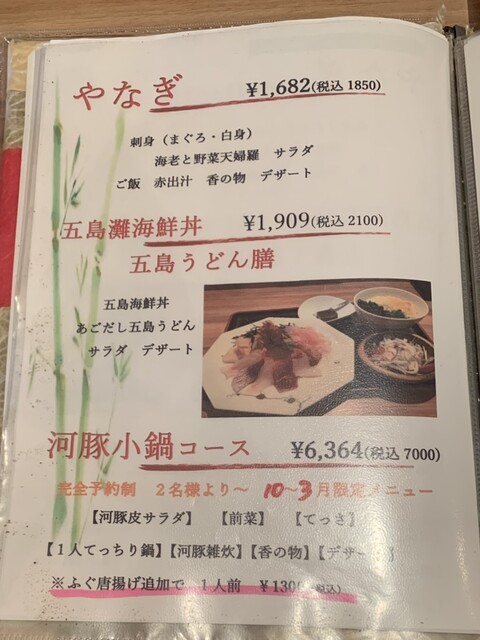 やなぎ ¥1,682(税込 1850)
刺身（まぐろ・白身）
海老と野菜天婦羅 サラダ
ご飯 赤出汁 香の物 デザート
五島灘海鮮丼 ¥1,909(税込 2100)
五島うどん膳
五島海鮮丼
あごだし五島うどん
サラダ デザート
河豚小鍋コース ¥6,364(税込 7000)
完全予約制 2名様より～ 10～3月限定メニュー
【河豚皮サラダ】 【前菜】 【てっさ】
【1人てっちり鍋】【河豚雑炊】【香の物】【デザート】
※ふぐ唐揚げ追加で 1人前 ¥1300(税込)